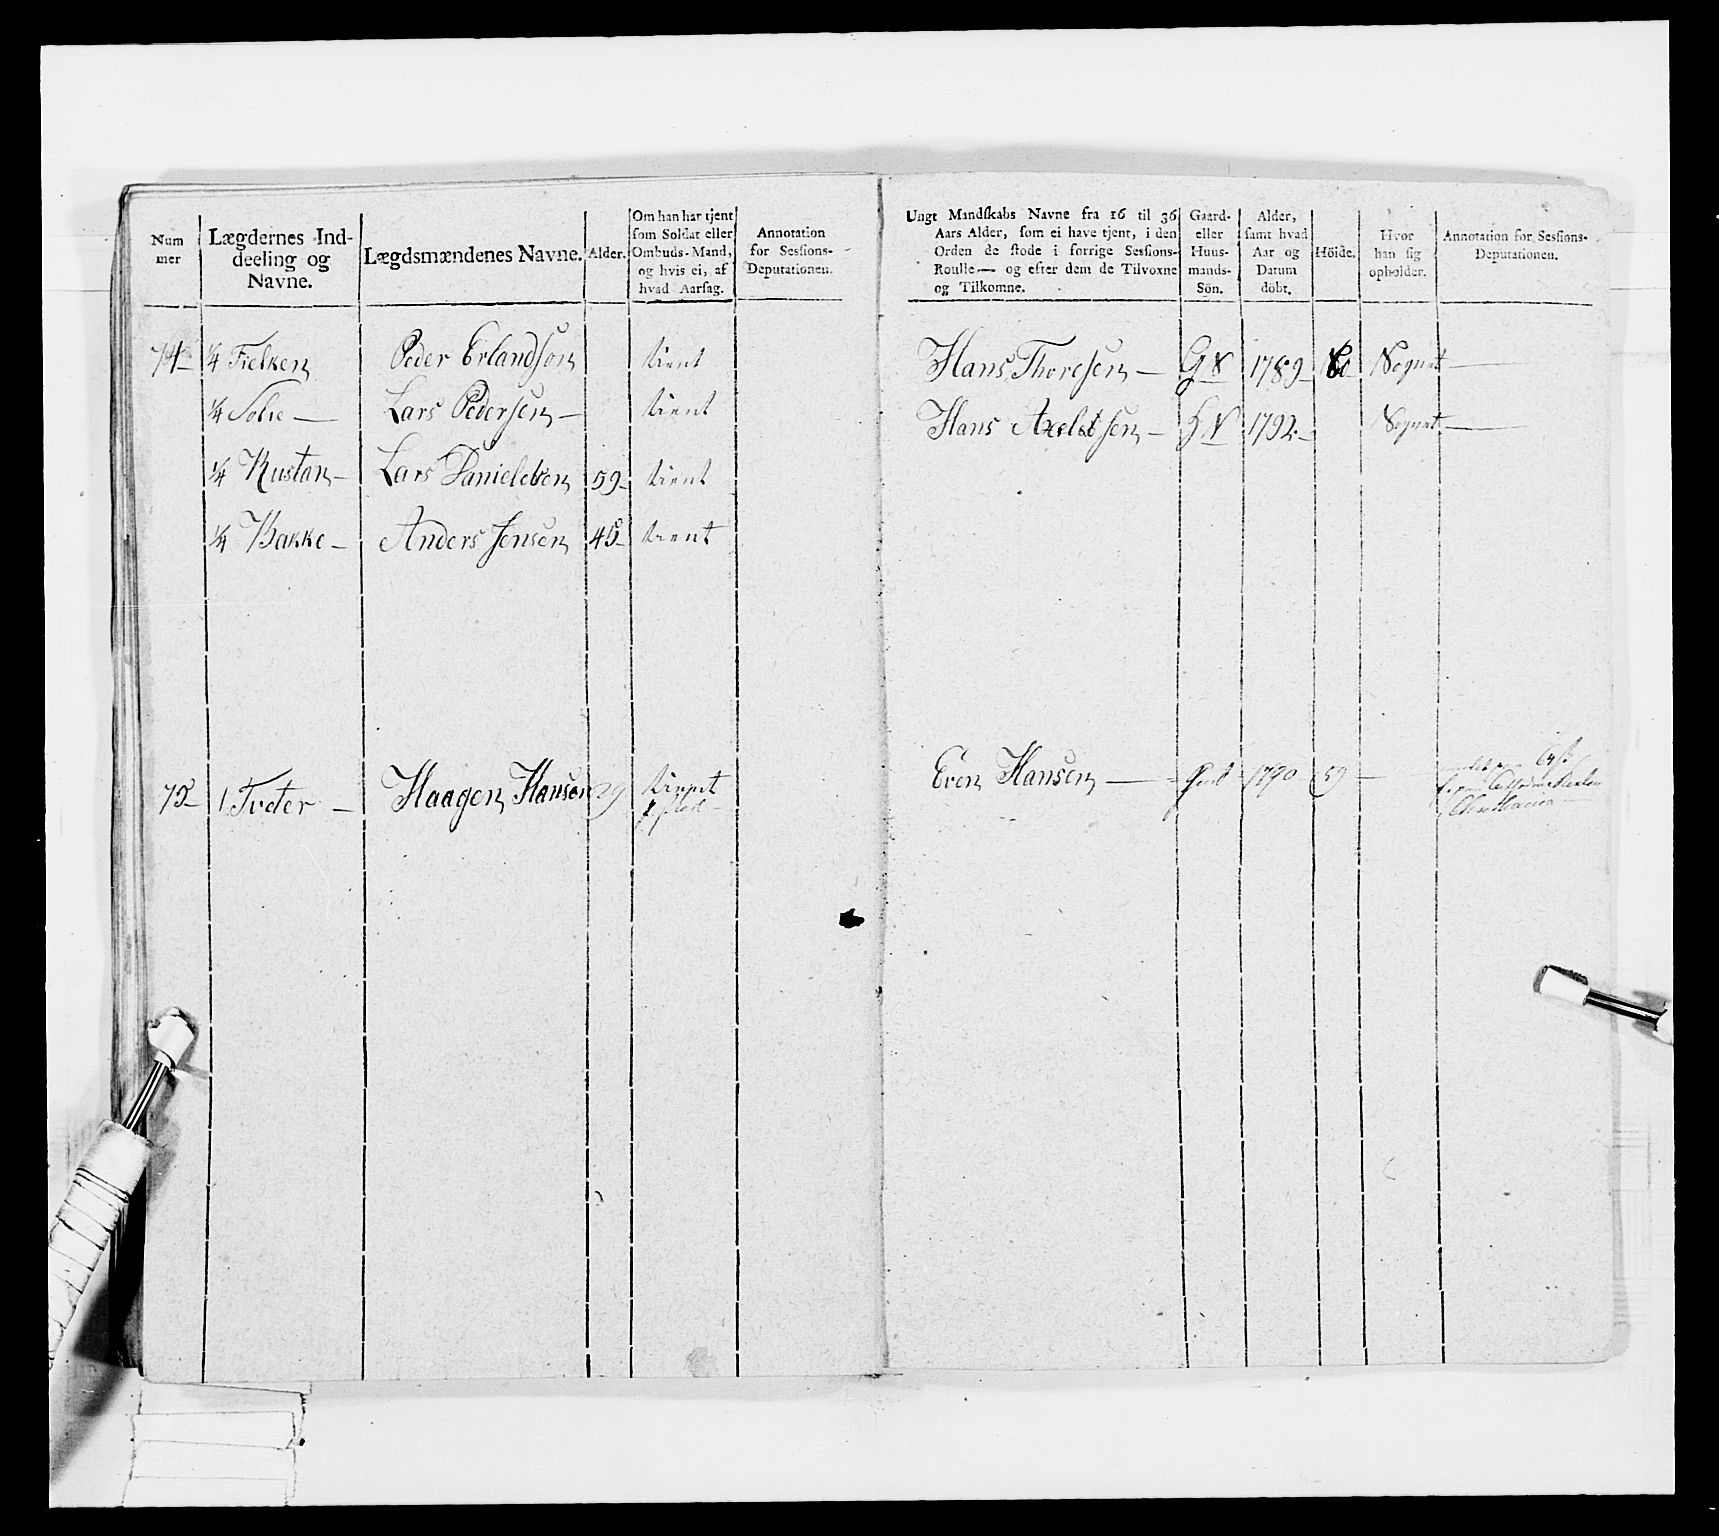 Num
mer
Lægdernes Ind-
deeling og
Navne.
Lægdsmændenes Navne.
Alder.
Om han har tjent
som Soldat eller
Ombuds-Mand,
og hvis ei, af
hvad Aarsag.
Annotation
for Sessions-
Deputationen.
74 ¼ Fielken Peder Erlandsøn tient
¼ Solie Lars Pedersen tient
¼ Rustan Lars Danielsen 59 tient
¼ Bakke Anders Jensen 45 tient
75 1 Tveter Haagen Hansen 29 tienet
Ungt Mandskabs Navne fra 16 til 36
Aars Alder, som ei have tjent, i den
Orden de stode i forrige Sessions-
Roulle — og efter dem de Tilvoxne
og Tilkomne.
Gaard-
eller
Huus-
mands-
Sön.
Alder,
samt hvad
Aar og
Datum
döbt.
Höide.
Hvor
han sig
opholder.
Annotation for Sessions-
Deputationen.
Hans Thoresen G S 1789 60 Sognet
Hans Axelsen H S 1792 Sognet
Even Hansen 1790 59
Christiania